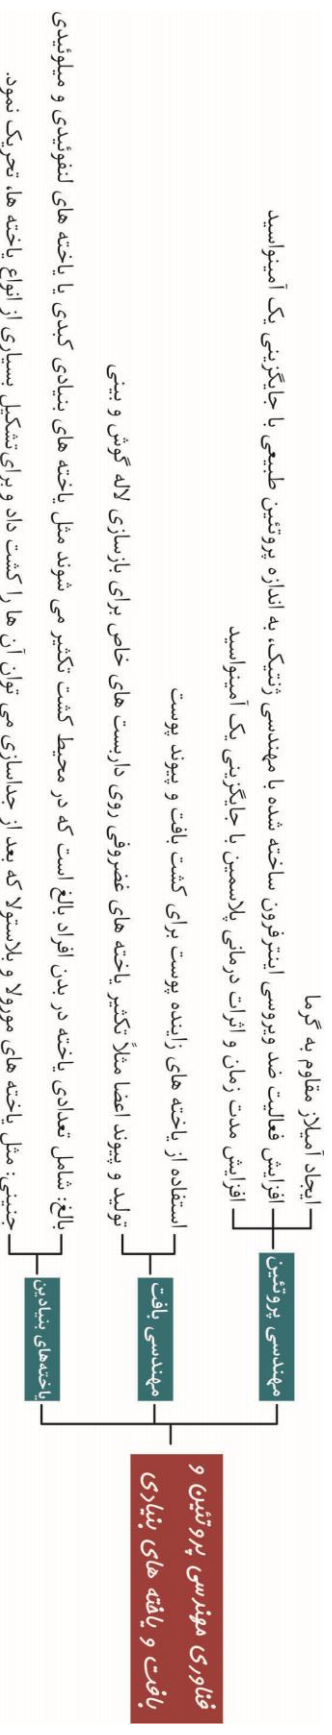 فناوری مهندسی پروتئین و
بافت و یاخته های بنیادی
مهندسی پروتئین
ایجاد آمیلاز مقاوم به گرما
افزایش فعالیت ضد ویروسی اینترفرون ساخته شده با مهندسی ژنتیک، به اندازه پروتئین طبیعی با جایگزینی یک آمینواسید
افزایش مدت زمان و اثرات درمانی پلاسمین با جایگزینی یک آمینواسید
مهندسی بافت
استفاده از یاخته های زاینده پوست برای کشت بافت و پیوند پوست
تولید و پیوند اعضا مثلاً تکثیر یاخته های غضروفی روی داربست های خاص برای بازسازی لاله گوش و بینی
یاخته‌های بنیادین
بالغ: شامل تعدادی یاخته در بدن افراد بالغ است که در محیط کشت تکثیر می شوند مثل یاخته های بنیادی کبدی یا یاخته های لنفوئیدی و میلوئیدی
جنینی: مثل یاخته های مورولا و بلاستولا که بعد از جداسازی می توان آن ها را کشت داد و برای تشکیل بسیاری از انواع یاخته ها، تحریک نمود.